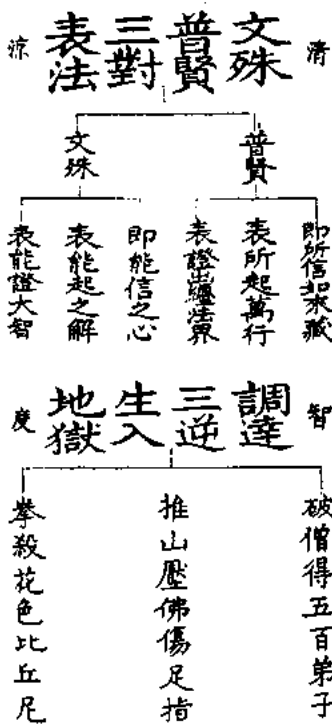 清
文殊
普賢
三對
表法
涼
普賢
文殊
即所信如來藏
表所起萬行
表證出纏法界
即能信之心
表能起之解
表能證大智
智
調達
三逆
生入
地獄
度
破僧得五百弟子
推山壓佛傷足指
拳殺花色比丘尼